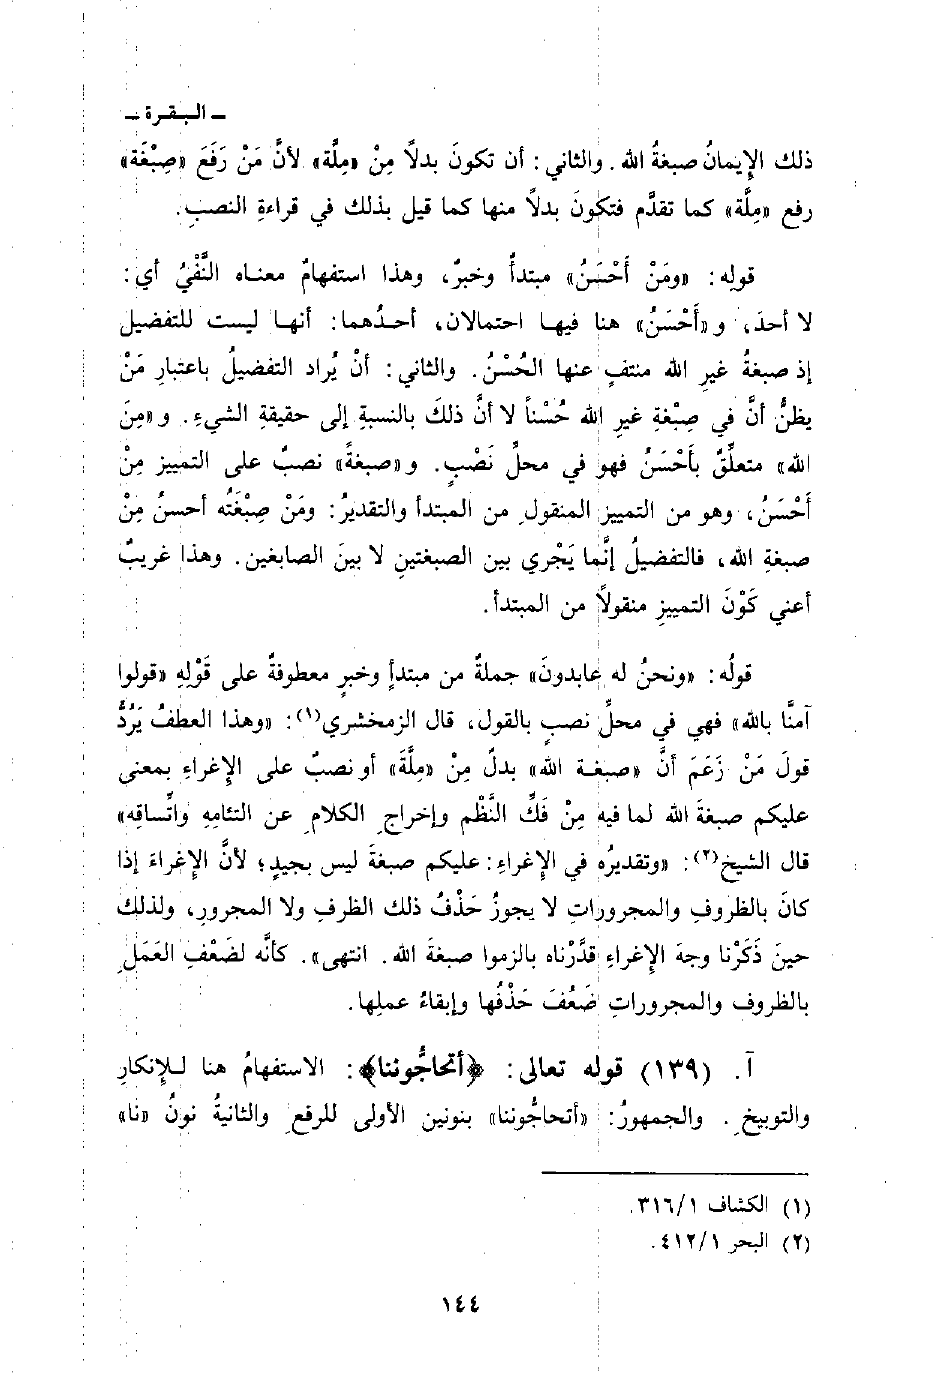 ـ البـقـرة ـ
ذلك الإِيمانُ صبغةُ الله. والثاني: أن تكونَ بدلاً مِنْ «مِلَّة» لأنَّ مَنْ رَفَعَ «صِبْغَة»
رفع «مِلَّة» كما تقدَّم فتكونَ بدلاً منها كما قيل بذلك في قراءةِ النصبِ.
قولِه: «ومَنْ أَحْسَنُ» مبتدأٌ وخبرٌ، وهذا استفهامٌ معناه النَّفْيُ أي:
لا أحدَ، و«أَحْسَنُ» هنا فيها احتمالان، أحـدُهما: أنها ليست للتفضيل
إذ صبغةُ غيرِ الله منتفٍ عنها الحُسْنُ. والثاني: أنْ يُراد التفضيلُ باعتبارِ مَنْ
يظنُّ أنَّ في صِبْغةِ غيرِ الله حُسْناً لا أنَّ ذلكَ بالنسبةِ إلى حقيقةِ الشيءِ. و«مِنَ
الله» متعلِّقٌ بأَحْسَنُ فهو في محلِّ نَصْبٍ. و«صبغةً» نصبٌ على التمييز مِنْ
أَحْسَنُ، وهو من التمييزِ المنقولِ من المبتدأ والتقديرُ: ومَنْ صِبْغَتُه أحسنُ مِنْ
صبغةِ الله، فالتفضيلُ إنَّما يَجْري بين الصبغتينِ لا بينَ الصابغين. وهذا غريبٌ
أعني كَوْنَ التمييزِ منقولاً من المبتدأ.
قولُه: «ونحنُ له عابدونَ» جملةٌ من مبتدأٍ وخبرٍ معطوفةٌ على قَوْلِهِ «قولوا
آمنَّا بالله» فهي في محلِّ نصبٍ بالقول، قال الزمخشري(١): «وهذا العطفُ يَرُدُّ
قولَ مَنْ زَعَمَ أنَّ «صبغـة الله» بدلٌ مِنْ «مِلَّةَ» أو نصبٌ على الإِغراءِ بمعنى
عليكم صبغةَ الله لما فيه مِنْ فَكِّ النَّظْم وإخراجِ الكلامِ عن التئامِهِ واتِّساقِه»
قال الشيخ(٢): «وتقديرُه في الإِغراءِ: عليكم صبغةَ ليس بجيدٍ؛ لأنَّ الإِغراءَ إذا
كانَ بالظروفِ والمجروراتِ لا يجوزُ حَذْفُ ذلك الظرفِ ولا المجرورِ، ولذلك
حينَ ذَكَرْنا وجهَ الإِغراءِ قدَّرْناه بالزموا صبغةَ الله. انتهى». كأنَّه لضَعْفِ العَمَلِ
بالظروف والمجروراتِ ضَعُفَ حَذْفُها وإبقاءُ عملِها.
آ. (١٣٩) قوله تعالى: ﴿أتحاجُّوننا﴾: الاستفهامُ هنا لـلإِنكارِ
والتوبيخِ. والجمهورُ: «أتحاجُّوننا» بنونين الأولى للرفعِ والثانيةُ نونُ «نا»
(١) الكشاف ٣١٦/١.
(٢) البحر ٤١٢/١.
١٤٤